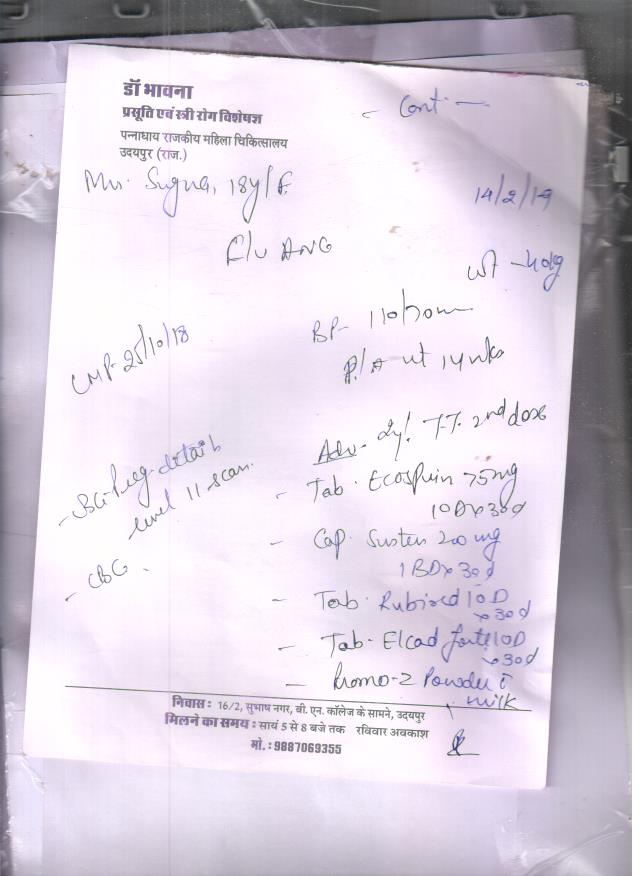 डॉ भावना
प्रसूति एवं स्त्री रोग विशेषज्ञ
पन्नाधाय राजकीय महिला चिकित्सालय
उदयपुर (राज.)
- Cont -
Mrs. Sugna, 18y/F
14/2/19
F/U ANC
wt - 40kg
BP- 110/70mm
LMP- 25/10/18
P/A ut 14wks
Adv- Inj. T.T. 2nd dose
- USG-Preg. details
level 11 scan.
- Tab. Ecosprin 75mg
1OD x 30d
- CBC.
- Cap. Susten 200 mg
1BD x 30d
- Tab. Rubired 1OD
x 30d
- Tab. Elcad forte 1OD
x 30d
- Powder c̅
milk
निवास : 16/2, सुभाष नगर, बी. एन. कॉलेज के सामने, उदयपुर
मिलने का समय : सायं 5 से 8 बजे तक रविवार अवकाश
मो. : 9887069355